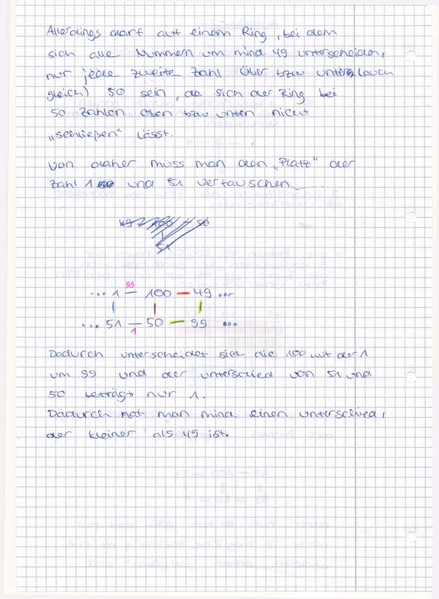 Allerdings darf auf einem Ring, bei dem
sich alle Nummern um mind 49 unterscheiden,
nur jede zweite Zahl über bzw unter (auch
gleich) 50 sein, da sich der Ring bei
50 Zahlen oben bzw unten nicht
„schließen" lässt.
Von daher muss man den „Platz" der
Zahl 1 und 51 vertauschen.
51
... 1 99 — 100 — 49 ...
... 51 — 1 50 — 99 ...
Dadurch unterscheidet sich die 100 mit der 1
um 99 und der unterschied von 51 und
50 beträgt nur 1.
Dadurch hat man mind einen unterschied,
der kleiner als 49 ist.